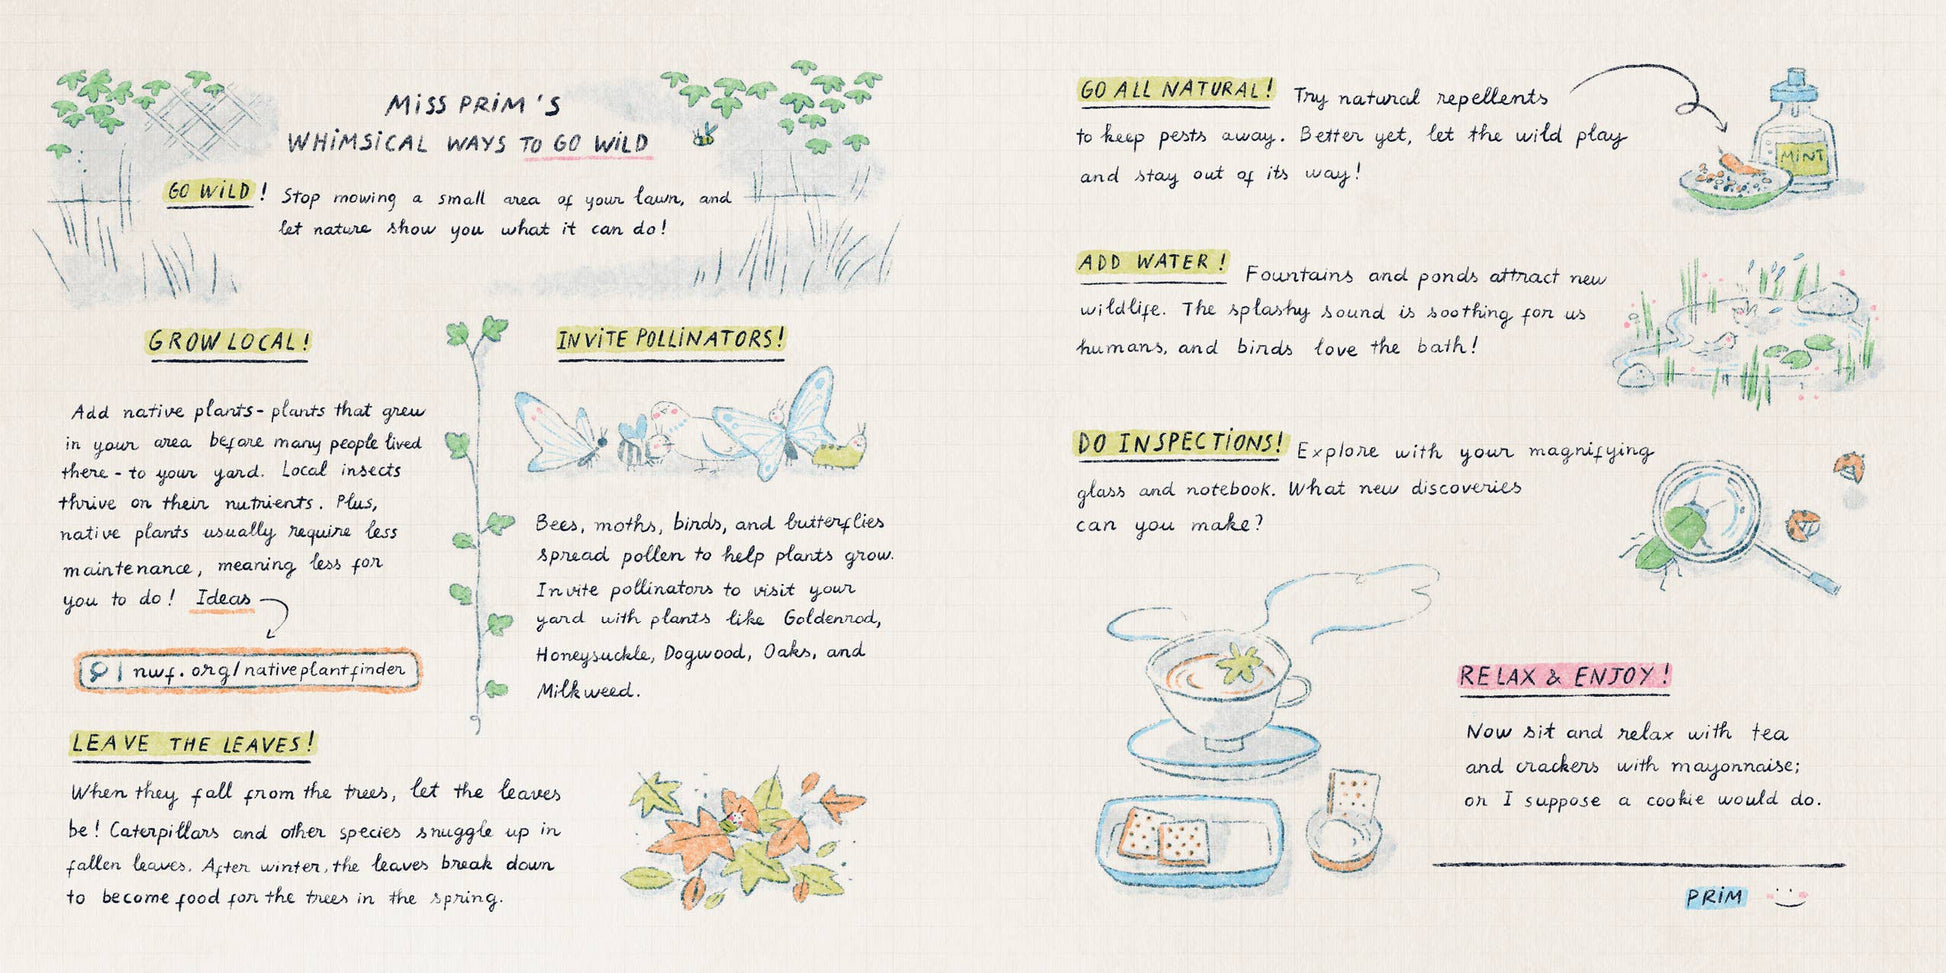 MiSS PRiM'S
WHiMSiCAL WAYS TO GO WiLD
GO WiLD! Stop mowing a small area of your lawn, and
let nature show you what it can do!
GROW LOCAL!
Add native plants - plants that grew
in your area before many people lived
there - to your yard. Local insects
thrive on their nutrients. Plus,
native plants usually require less
maintenance, meaning less for
you to do! Ideas
nwf.org/nativeplantfinder
INViTE POLLiNATORS!
Bees, moths, birds, and butterflies
spread pollen to help plants grow.
Invite pollinators to visit your
yard with plants like Goldenrod,
Honeysuckle, Dogwood, Oaks, and
Milkweed.
LEAVE THE LEAVES!
When they fall from the trees, let the leaves
be! Caterpillars and other species snuggle up in
fallen leaves. After winter, the leaves break down
to become food for the trees in the spring.
GO ALL NATURAL! Try natural repellents
to keep pests away. Better yet, let the wild play
and stay out of its way!
MiNT
ADD WATER! Fountains and ponds attract new
wildlife. The splashy sound is soothing for us
humans, and birds love the bath!
DO INSPECTiONS! Explore with your magnifying
glass and notebook. What new discoveries
can you make?
RELAX & ENJOY!
Now sit and relax with tea
and crackers with mayonnaise;
or I suppose a cookie would do.
PRiM